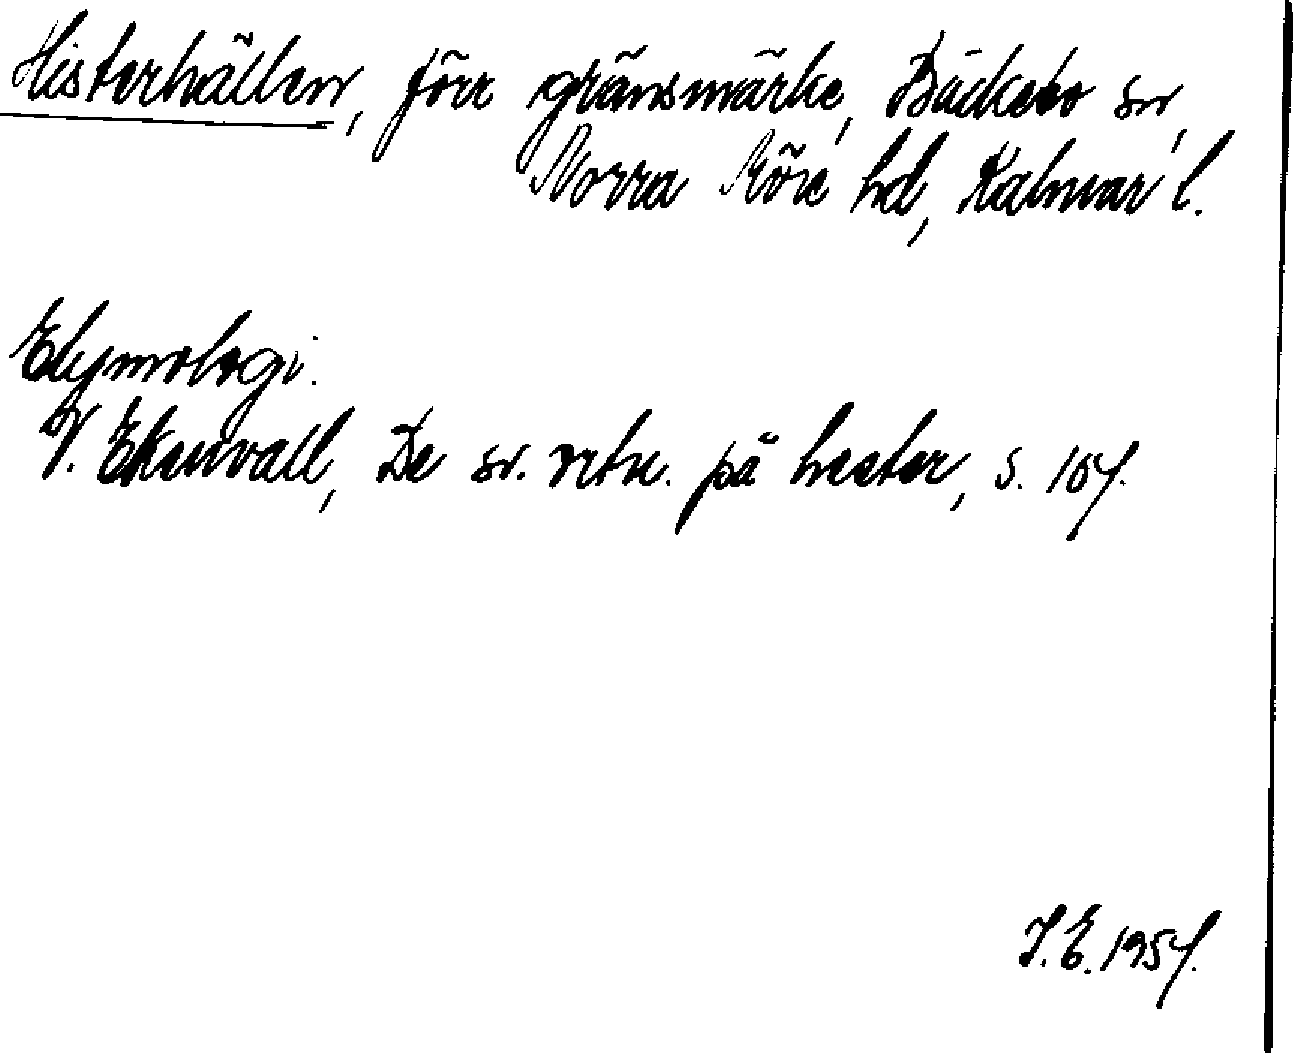 Histerhällen, förr gränsmärke, Bäckebo sn,
Norra Möre hd, Kalmar l.
Etymologi.
V. Ekenvall, De sv. ortn. på hester, s. 107.
I.E. 1957.